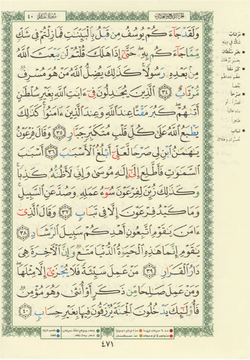 ٤٠
وَلَقَدْ جَآءَكُمْ يُوسُفُ مِن قَبْلُ بِٱلْبَيِّنَٰتِ فَمَا زِلْتُمْ فِى شَكٍّ
مِّمَّا جَآءَكُم بِهِۦ حَتَّىٰٓ إِذَا هَلَكَ قُلْتُمْ لَن يَبْعَثَ ٱللَّهُ
مِنۢ بَعْدِهِۦ رَسُولًا كَذَٰلِكَ يُضِلُّ ٱللَّهُ مَنْ هُوَ مُسْرِفٌ
مُّرْتَابٌ ٣٤ ٱلَّذِينَ يُجَٰدِلُونَ فِىٓ ءَايَٰتِ ٱللَّهِ بِغَيْرِ سُلْطَٰنٍ
أَتَىٰهُمْ كَبُرَ مَقْتًا عِندَ ٱللَّهِ وَعِندَ ٱلَّذِينَ ءَامَنُوا۟ كَذَٰلِكَ
يَطْبَعُ ٱللَّهُ عَلَىٰ كُلِّ قَلْبِ مُتَكَبِّرٍ جَبَّارٍ ٣٥ وَقَالَ فِرْعَوْنُ
يَٰهَٰمَٰنُ ٱبْنِ لِى صَرْحًا لَّعَلِّىٓ أَبْلُغُ ٱلْأَسْبَٰبَ ٣٦ أَسْبَٰبَ
ٱلسَّمَٰوَٰتِ فَأَطَّلِعَ إِلَىٰٓ إِلَٰهِ مُوسَىٰ وَإِنِّى لَأَظُنُّهُۥ كَٰذِبًا
وَكَذَٰلِكَ زُيِّنَ لِفِرْعَوْنَ سُوٓءُ عَمَلِهِۦ وَصُدَّ عَنِ ٱلسَّبِيلِ
وَمَا كَيْدُ فِرْعَوْنَ إِلَّا فِى تَبَابٍ ٣٧ وَقَالَ ٱلَّذِىٓ
ءَامَنَ يَٰقَوْمِ ٱتَّبِعُونِ أَهْدِكُمْ سَبِيلَ ٱلرَّشَادِ ٣٨
يَٰقَوْمِ إِنَّمَا هَٰذِهِ ٱلْحَيَوٰةُ ٱلدُّنْيَا مَتَٰعٌ وَإِنَّ ٱلْءَاخِرَةَ هِىَ
دَارُ ٱلْقَرَارِ ٣٩ مَنْ عَمِلَ سَيِّئَةً فَلَا يُجْزَىٰٓ إِلَّا مِثْلَهَا
وَمَنْ عَمِلَ صَٰلِحًا مِّن ذَكَرٍ أَوْ أُنثَىٰ وَهُوَ مُؤْمِنٌ
فَأُو۟لَٰٓئِكَ يَدْخُلُونَ ٱلْجَنَّةَ يُرْزَقُونَ فِيهَا بِغَيْرِ حِسَابٍ ٤٠
٤٧١